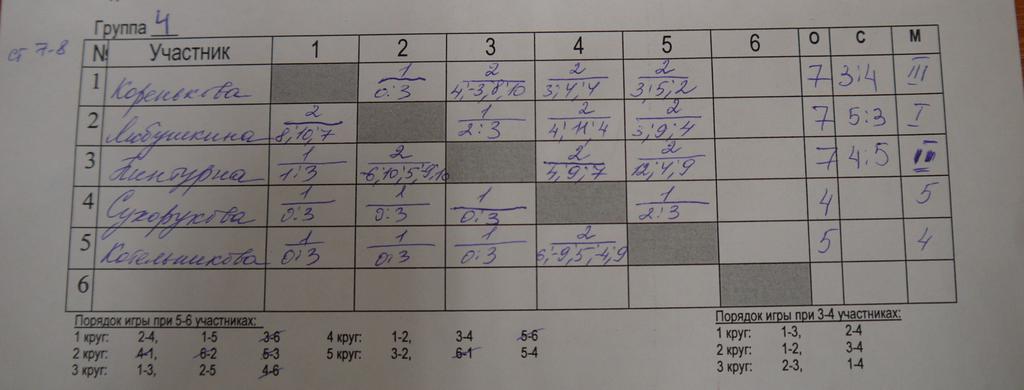 Группа 4
ст 7-8
№ Участник 1 2 3 4 5 6 О С М
1 Коренькова 1 0:3 2 4,-3,8,10 2 3,4,4 2 3,5,2 7 3:4 III
2 Любушкина 2 8,10,7 1 2:3 2 4,11,4 2 3,9,4 7 5:3 I
3 1 1:3 2 -6,10,5,-9,10 2 4,9,7 2 12,4,9 7 4:5 II
4 Сухорукова 1 0:3 1 0:3 1 0:3 1 2:3 4 5
5 Котельникова 1 0:3 1 0:3 1 0:3 2 6,-9,5,-4,9 5 4
6
Порядок игры при 5-6 участниках:
1 круг: 2-4, 1-5 3-6 4 круг: 1-2, 3-4 5-6
2 круг: 4-1, 6-2 5-3 5 круг: 3-2, 6-1 5-4
3 круг: 1-3, 2-5 4-6
Порядок игры при 3-4 участниках:
1 круг: 1-3, 2-4
2 круг: 1-2, 3-4
3 круг: 2-3, 1-4